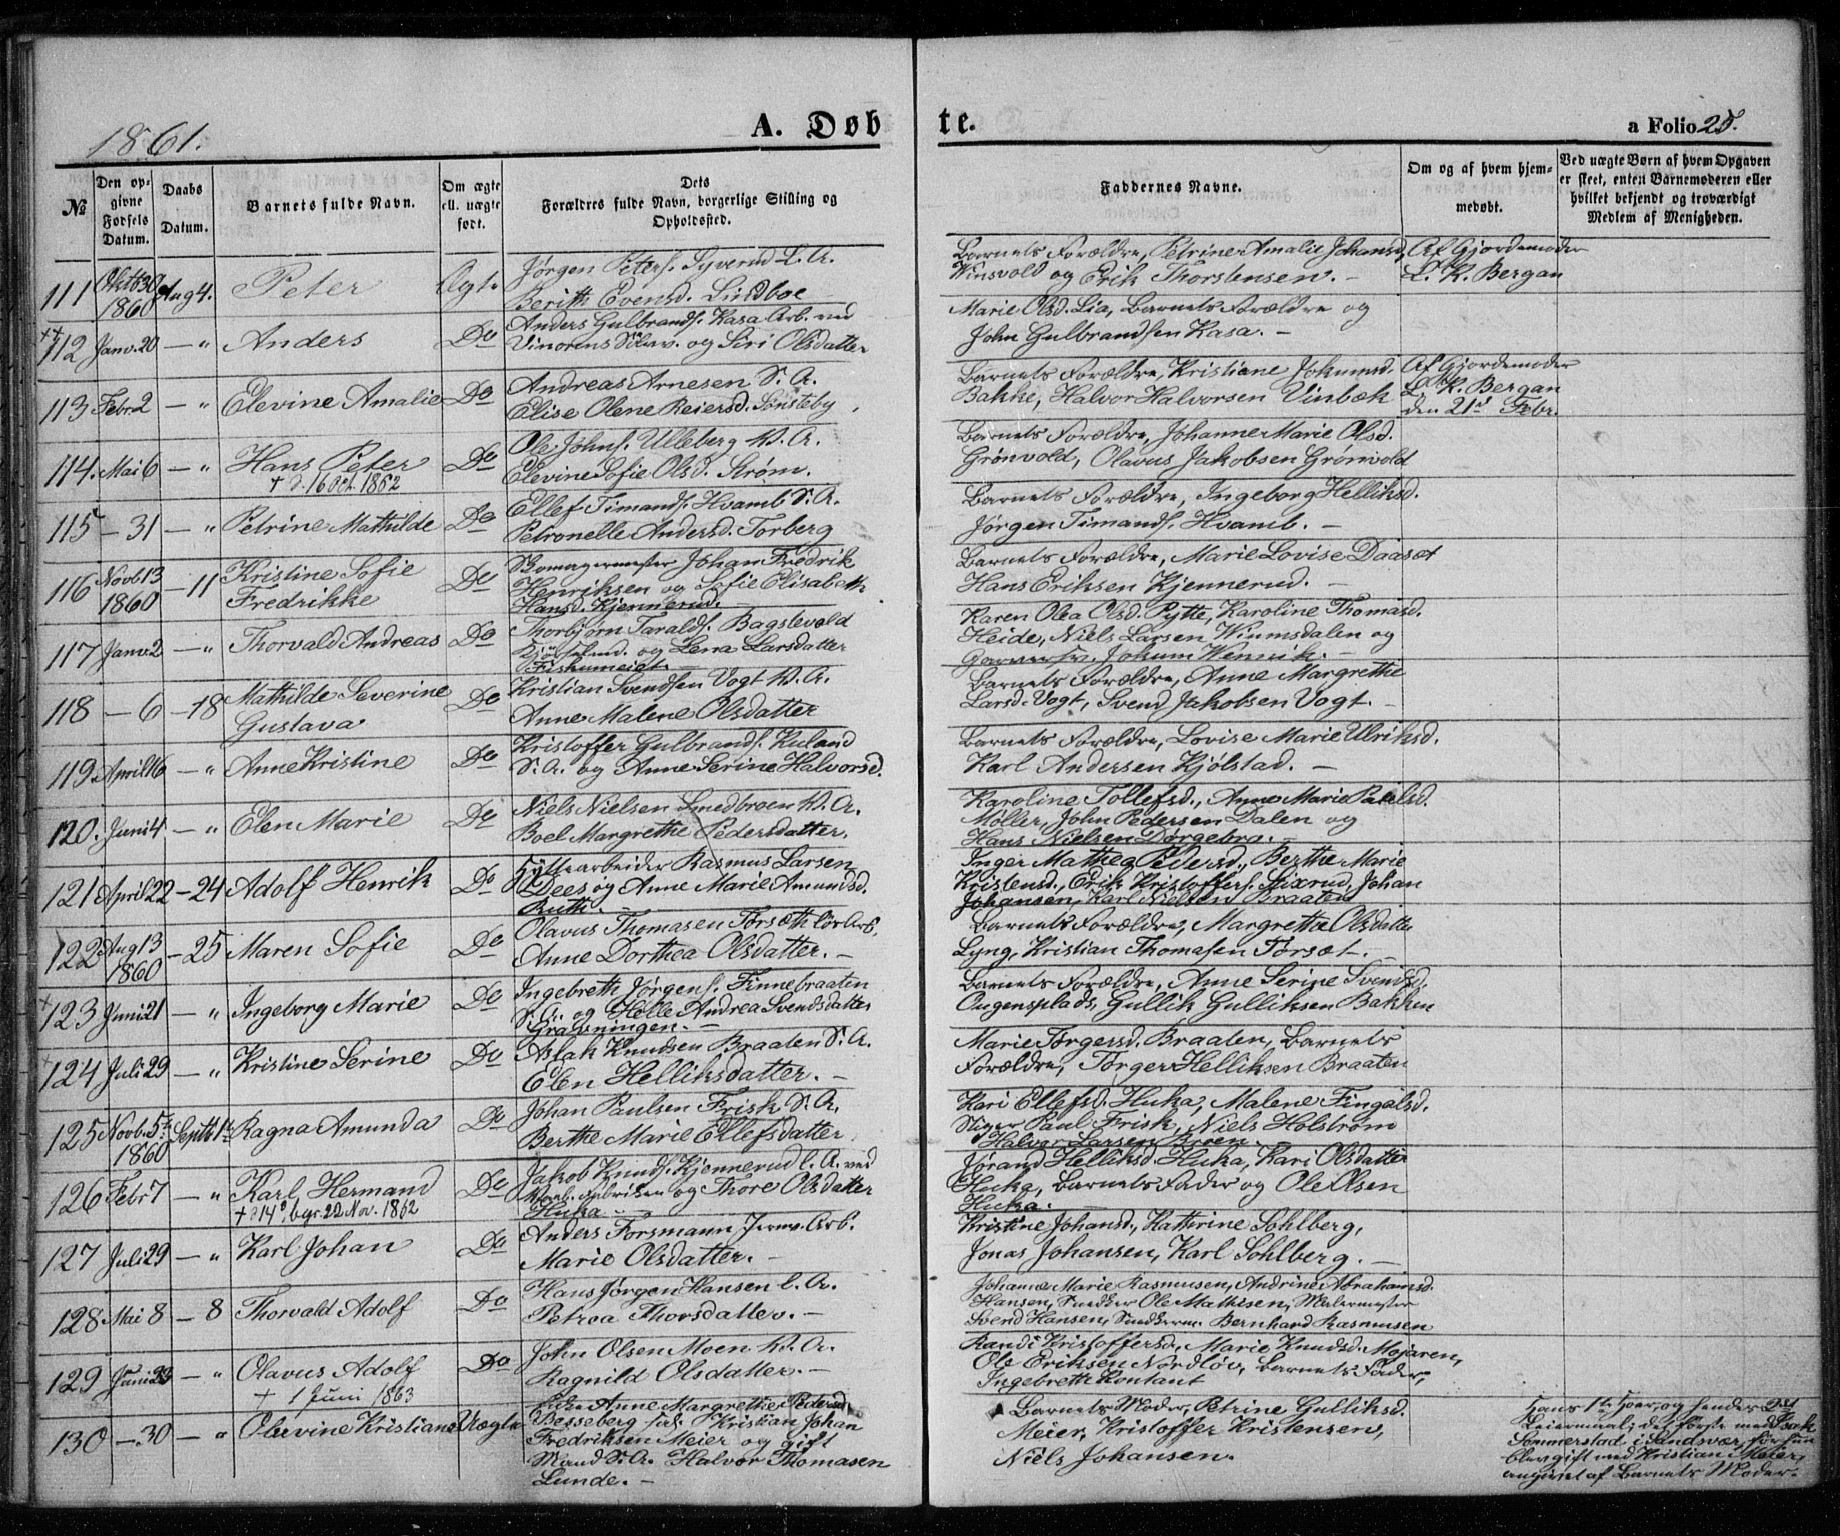 1861.
A. Døbte.
a Folio 25.
№
Den opgivne Fødsels Datum.
Daabs Datum.
Barnets fulde Navn.
Om ægte ell. uægte født.
Dets Forældres fulde Navn, borgerlige Stilling og Opholdssted.
Faddernes Navne.
Om og af hvem hjemmedøbt.
Ved uægte Børn af hvem Opgaven er skeet, enten Barnemoderen eller hvilket bekjendt og troværdigt Medlem af Menigheden.
111 Oktb 30 1860 Aug 4. Peter Ægte
Jørgen Peters. Syverud L. A.
Berith Evensd. Lindboe
Barnets Forældre, Petrine Amalie Johansd.
Winsvold og Erik Thorstensen. –
Af Gjordemoder
L. K. Bergan
112 Janv. 20 – " Anders Do
Anders Gulbrands. Kasa Arb. ved
Vinorens Sølvv. og Siri Olsdatter
Marie Olsd. Lia, Barnets Forældre og
John Gulbrandsen Kasa. –
113 Febr. 2 – " Elevine Amalie Do
Andreas Arnesen S. A.
Elise Olene Reiersd. Sønsteby
Barnets Forældre, Kristiane Johnsd.
Bakke, Halvor Halvorsen Vinbæk
Af Gjordemoder
L. K. Bergan
den 21d Febr.
114. Mai 6 – " Hans Peter Do
† d. 16 Oct. 1862
Ole Johns. Ulleberg V. A.
Elevine Sofie Olsd. Strøm.
Barnets Forældre, Johanne Marie Olsd.
Grønvold, Olavus Jakobsen Grønvold
115 – 31 – " Petrine Mathilde Do
Ellef Timands. Hvamb S. A.
Petronelle Andersd. Torberg
Barnets Forældre, Ingeborg Helliksd.
Jørgen Timands. Hvamb. –
116 Novb 13 1860 – 11 Kristine Sofie
Fredrikke Do
Skomagermester Johan Fredrik
Henriksen og Sofie Elisabeth
Hansd. Kjennerud.
Barnets Forældre, Marie Lovise Daaset
Hans Eriksen Kjennerud. –
117 Janv. 2 – " Thorvald Andreas Do
Thorbjørn Taralds. Bagslevold
og Lena Larsdatter
Fiskumeidt. –
Karen Olea Olsd. Pytte, Karoline Thomasd.
Heide, Niels Larsen Wiumsdalen og
Johum Wennik. –
118 – 6 – 18 Mathilde Severine
Gustava Do
Kristian Svendsen Vogt V. A.
Anne Malene Olsdatter
Barnets Forældre, Anne Margrethe
Larsd. Vogt, Svend Jakobsen Vogt. –
119 April 16 – " Anne Kristine Do
Kristoffer Gulbrands. Ruland
S. A. og Anne Serine Halvorsd.
Barnets Forældre, Lovise Marie Ulriksd.
Karl Andersen Kjølstad. –
120. Juni 4 – " Elen Marie Do
Niels Nielsen Smedbroen V. A.
Boel Margrethe Pedersdatter.
Karoline Tollefsd., Anne Marie Paulsd.
Møller, John Pedersen Dalen og
Hans Nielsen Dørgebro. –
121 April 22 – 24 Adolf Henrik Do
Hyttearbeider Rasmus Larsen
Dees og Anne Marie Amundsd.
Ruth. –
Inger Mathea Pedersd., Berthe Marie
Kristensd., Erik Kristoffers. Stixrud, Johan
Johansen, Karl Nielsen Braaten
122 Aug 13 1860 – 25 Maren Sofie Do
Olavus Thomasen Torsæth lös Arb.
Anne Dorthea Olsdatter. –
Barnets Forældre, Margrethe Olsdatter
Lyng, Kristian Thomasen Torsæt. –
123 Juni 21 – " Ingeborg Marie Do
Ingebreth Jørgens. Finnebraaten
S. A. og Helle Andrea Svendsdatter
Gravningen. –
Barnets Forældre, Anne Serine Svendsd.
Augensplads, Gullik Gulliksen Bakken
124 Juli 29 – " Kristine Serine Do
Aslak Knudsen Braaten S. A.
Elen Helliksdatter. –
Marie Torgersd. Braaten, Barnets
Forældre, Torger Helliksen Braaten
125 Novb. 5te 1860 Septb 1ste Ragna Amunda Do
Johan Paulsen Frisk S. A.
Berthe Marie Ellefsdatter
Kari Ellefsd. Huka, Malene Fingalsd.
Stiger Paul Frisk, Niels Holstrøm
Halvor Larsen Broen. –
126 Febr 7 – " Karl Hermand Do
† d 14d, begr. 22 Nov. 1862
Jakob Knuds. Kjennerud l. A. ved
og Thore Olsdatter
Huka
Jørand Helliksd. Huka, Kari Olsdatter
Huka, Barnets Fader og Ole Olsen
Huka. –
127 Juli 29 – " Karl Johan Do
Anders Forsmann Jernv. Arb.
Marie Olsdatter. –
Kristine Johansd., Kathrine Sohlberg,
Jonas Johansen, Karl Sohlberg. –
128 Mai 8 – 8 Thorvald Adolf Do
Hans Jørgen Hansen l. A.
Petrea Thorsdatter. –
Johanne Marie Rasmussen, Andrine Abrahamsd.
Hansen, Snedker Ole Mathisen, Malermester
Svend Hansen, Snedkerm. Bernhard Rasmussen
129 Juni 23 – " Olavus Adolf Do
† 1 Juni 1863
John Olsen Moen V. A.
Ragnild Olsdatter. –
Randi Kristoffersd., Marie Knudsd. Mojaren,
Ole Eriksen Nordløv, Barnets Fader,
Ingebreth Kontant
130 – 30 – " Olevine Kristiane Uægte
Anne Margrethe Pedersd.
Besseberg Kristian Johan
Fredriksen Meier og gift
Mand S. A. Halvor Thomasen
Lunde. –
Barnets Moder, Petrine Gulliksd.
Meier, Kristoffer Kristensen,
Niels Johansen.
Hans 1te Hoer, og hendes 2det
Leiermaal; det første med Isak
Sommerstad i Sandsvær, før hun
blev gift med Kristian Meier,
angivet af Barnets Moder.